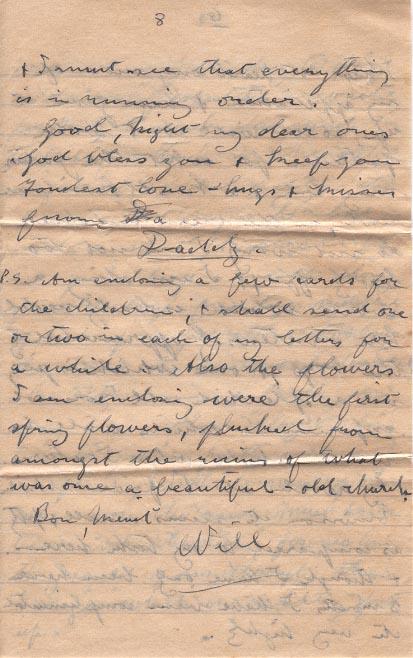 8
+ I must see that everything
is in running order.
Good, Night my dear ones
God bless you + keep you
Fondest love - hugs + kisses
from
Daddy.
P.S. Am enclosing a few cards for
the children, + shall send one
or two in each of my letters for
a while. Also the flowers
I am enclosing were the first
spring flowers, plucked from
amongst the ruins of what
was once a beautiful - old church.
Bon, Menuit
Will